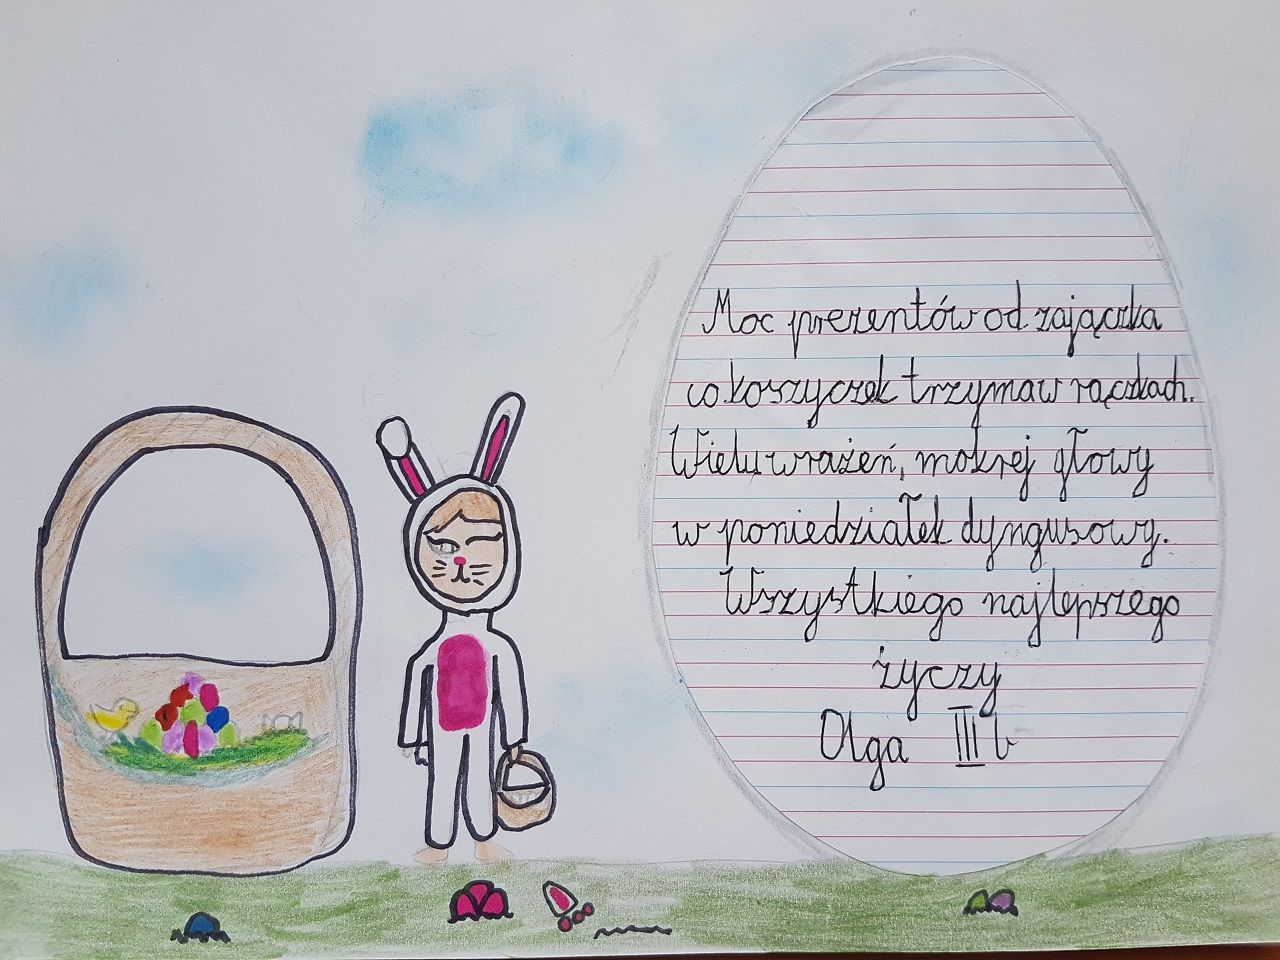 Moc prezentów od zajączka
co koszyczek trzyma w rączkach.
Wielu wrażeń, mokrej głowy
w poniedziałek dyngusowy.
Wszystkiego najlepszego
życzy
Olga III b